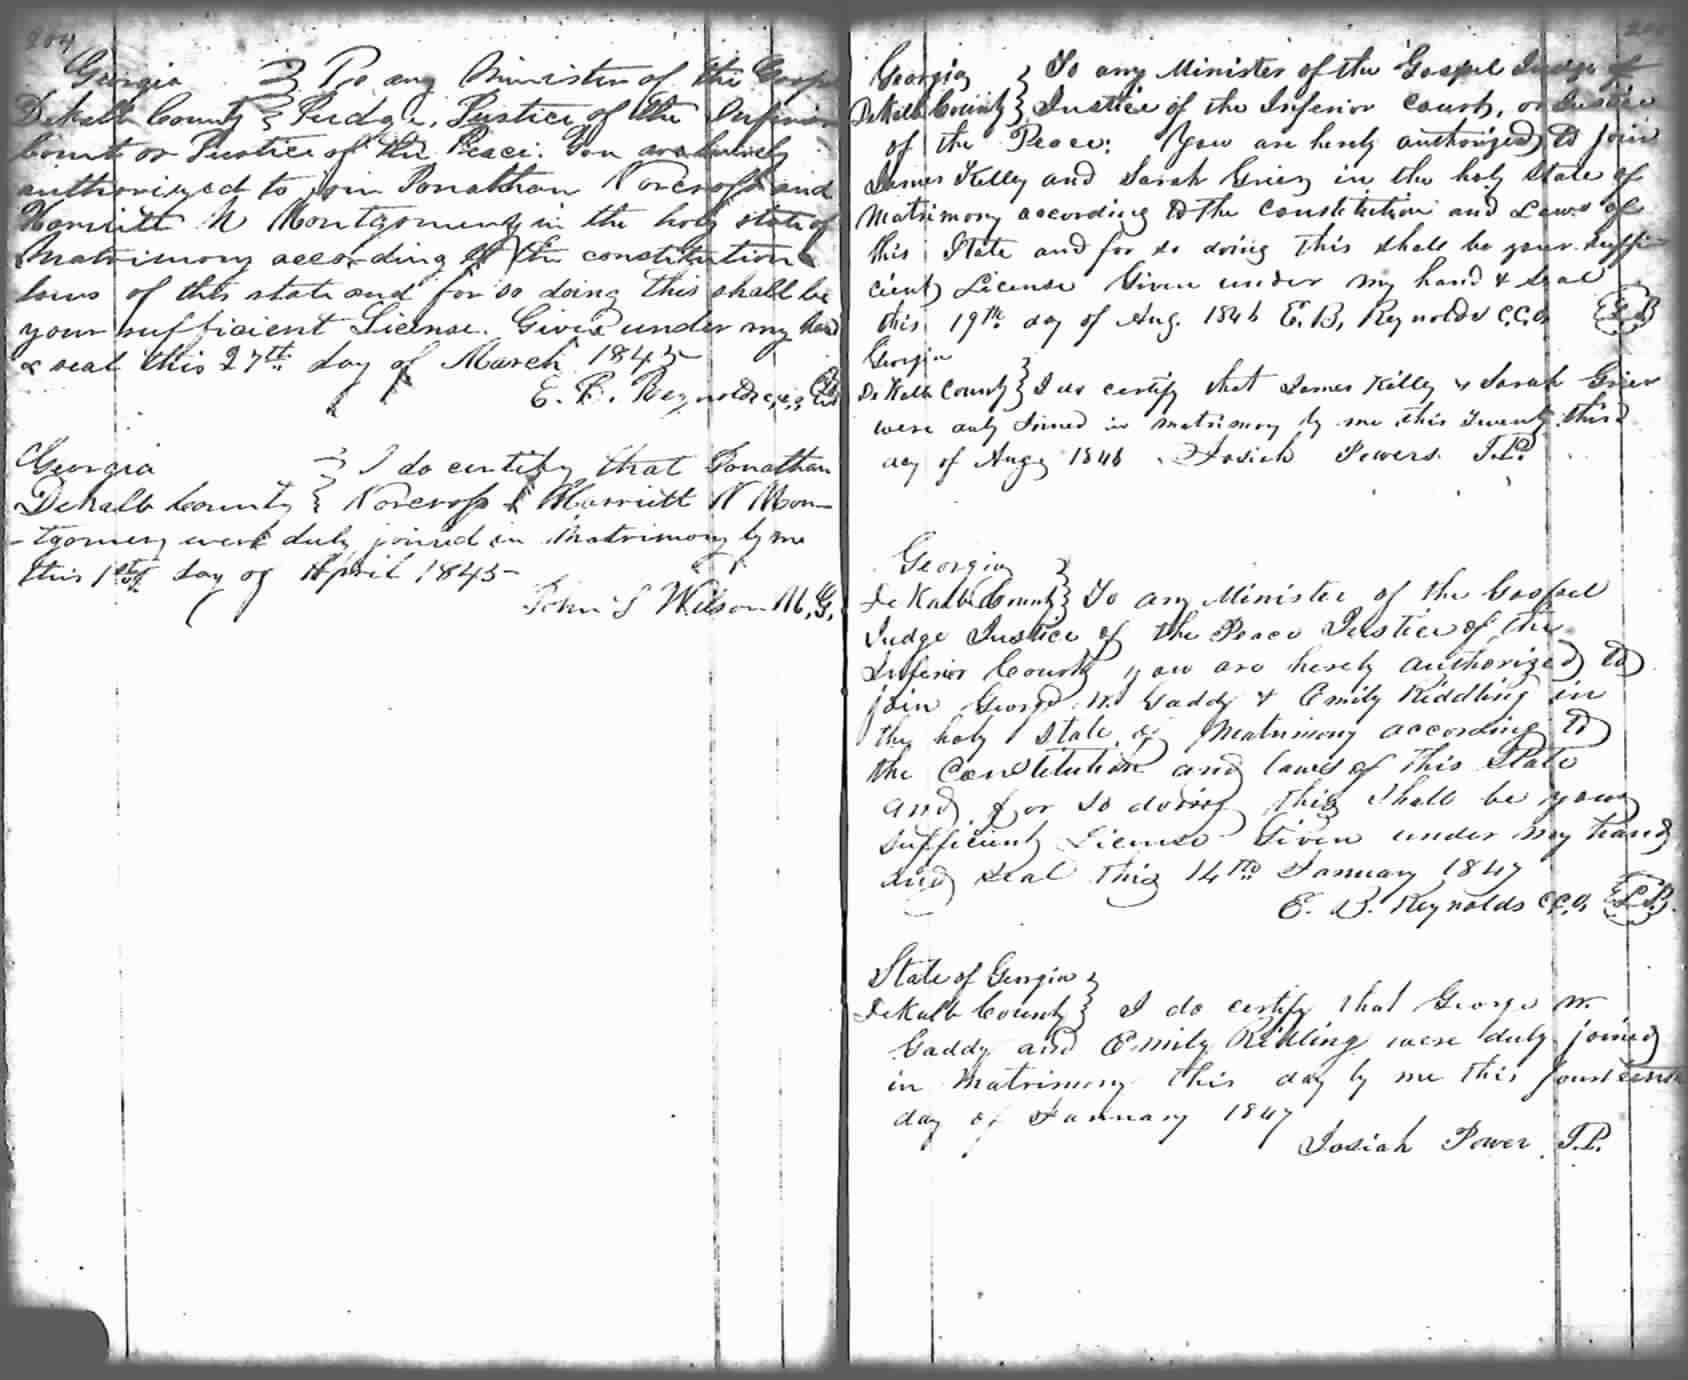 204
Georgia } To any Minister of the Gosp
DeKalb County } Judge, Justice of the Inferior
Court or Justice of the Peace. You are hereby
authorized to join Jonathan Norcross and
Harriett N Montgomery in the holy state of
Matrimony according to the constitution &
laws of this state and for so doing this shall be
your sufficient License. Given under my hand
& seal this 27th day of March 1845
E. B. Reynolds c.c.o.
Georgia } I do certify that Jonathan
DeKalb County } Norcross & Harriett N Mon-
-tgomery were duly joined in Matrimony by me
this 1st day of April 1845
John S Wilson M.G.
Georgia } To any Minister of the Gospel Judge of
DeKalb County } Justice of the Inferior Court, or Justice
of the Peace: You are herely authorized to join
James Kelley and Sarah Grier in the holy State of
Matrimony according to the Constitution and Laws of
this State and for so doing this shall be your suffi-
cient License Given under my hand & seal
this 19th day of Aug. 1846 E. B. Reynolds C.C.O.
Georgia
DeKalb County } I do certify that James Killy & Sarah Grier
were duly Joined in matrimony by me this Twenty third
day of Aug 1846 Josiah Powers J.P.
Georgia
DeKalb County } To any Minister of the Gospel
Judge Justice of the Peace Justice of the
Inferior Court you are herely authorized to
join George W. Gaddy & Emily Riddling in
the holy State of Matrimony according to
the Constitution and laws of this State
and for so doing this shall be your
sufficient License Given under my hand
and seal this 14th January 1847
E. B. Reynolds C.C.O.
State of Georgia }
DeKalb County } I do certify that George W.
Gaddy and Emily Ridling were duly joined
in Matrimony this day by me this fourteenth
day of January 1847
Josiah Power J.P.